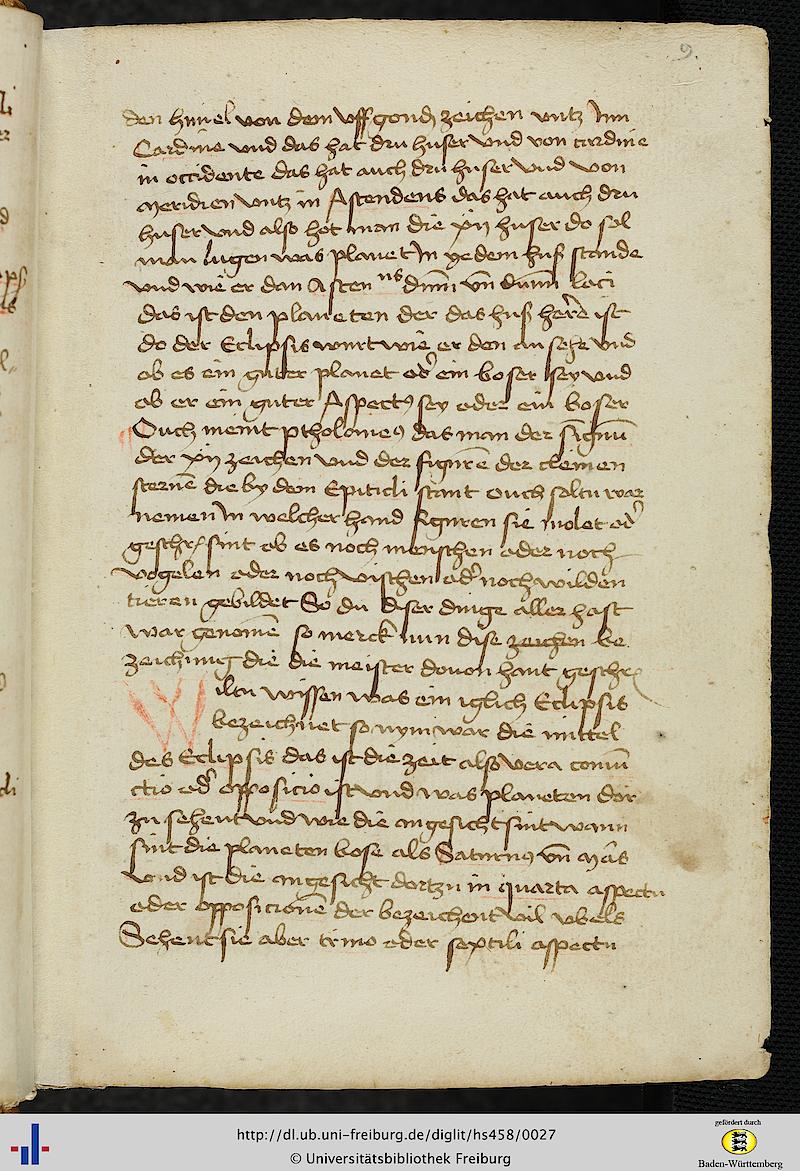 9.
den himel von dem vffgond zeichen vntz Inn
Cardine vnd das hat dru huser vnd von cardine
in occidente das hat auch dru huser vnd von
Meridien vntz in Ascendens das hat auch dru
huser vnd also hat man die xij huser do sol
man lugen was planet In yedem huß stande
vnd wie er dan Ascen ns dnm̄ vn̄ loci
das ist den planeten der das huß here ist
do der Eclipsis wurt wie er den an sehe vnd
ob es ein guter planet od' ein boser sey vnd
ob er ein guter Aspect9 sey oder ein boser
Ouch meint ptholome9 das man der signū
der xij zeichen vnd der figurē der cleinen
sternē die by dem Epiticli stant ouch soltu war
nemen In welcher hand figuren sie molet od'
geschr sint ob es noch menschen oder noch
vogelen oder noch vischen od' noch wilden
tieren gebildet So du diser dinge aller hast
war genomē so merck nun dise zeichen be
zeichnung die die meister douon hant geschr
Wiltu wissen was ein iglich Eclipsis
bezeichnet so nym war die mittel
des Eclipsis das ist die zeit also vera coniū
ctio od' opposicio ist vnd was planeten dar
zu sehent vnd wie die angesicht sint wann
sint die planeten bose als Saturn9 vn̄ Mās
vnd ist die angesicht dortzu in quarta aspectu
oder opposicionē der bezeichent vil vbels
Sehent sie aber trino oder sextili aspectu
http://dl.ub.uni-freiburg.de/diglit/hs458/0027
© Universitätsbibliothek Freiburg
gefördert durch
Baden-Württemberg